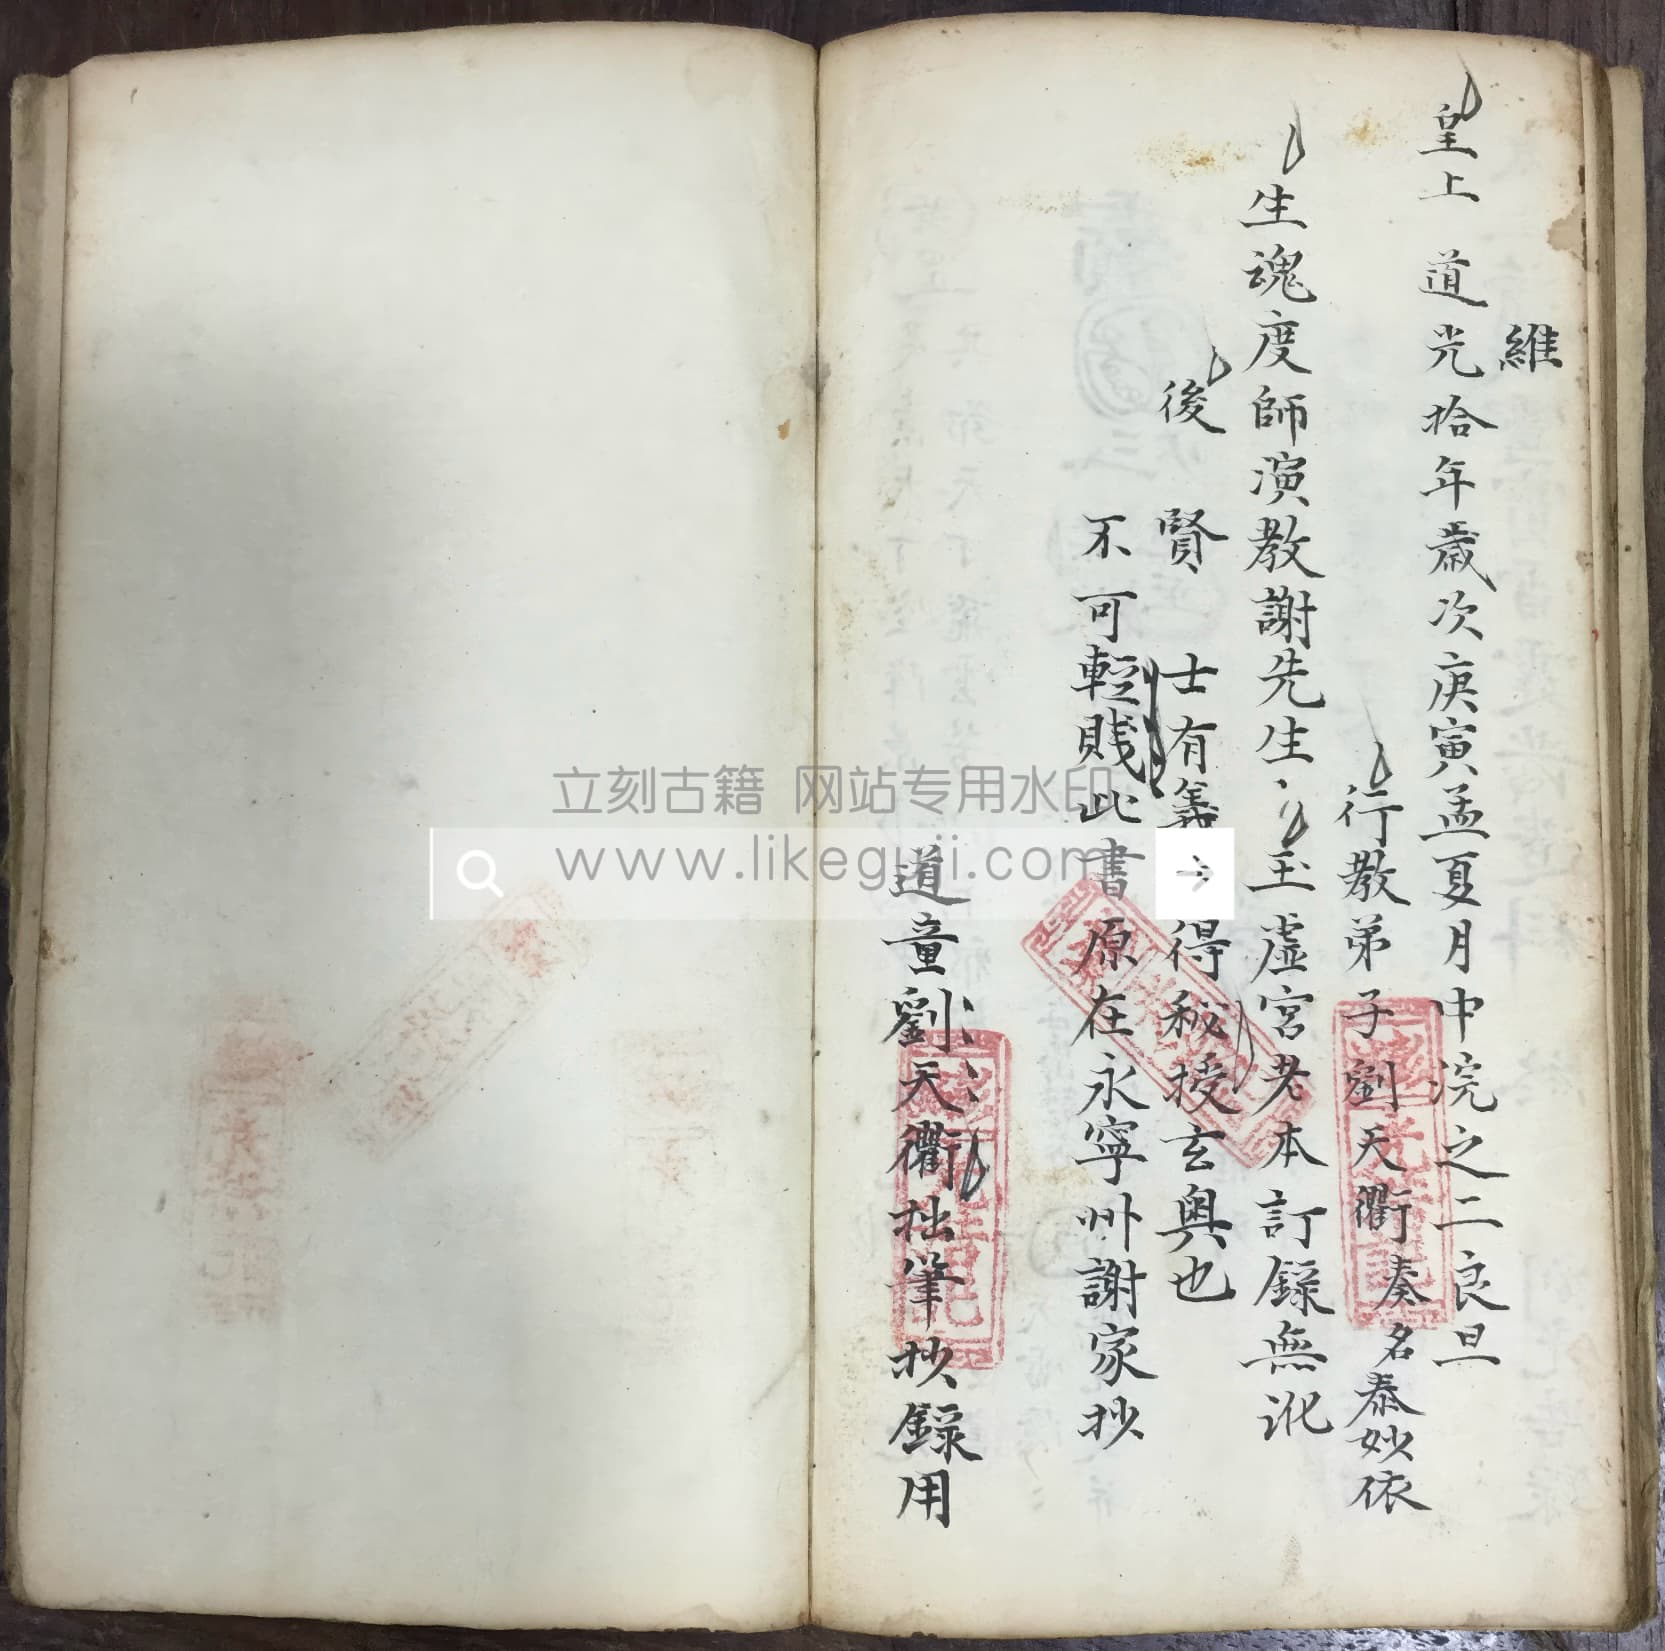 維
皇上 道光拾年歲次庚寅孟夏月中浣之二良旦
行教弟子劉天衢奏名泰妙依
生魂度師演教謝先生玉虛宮老本訂錄無訛
後 賢 士有義得秘授玄奧也
不可輕賤此書原在永寧州謝家抄
道童劉天衢拙筆抄錄用
立刻古籍 网站专用水印
www.likeguji.com